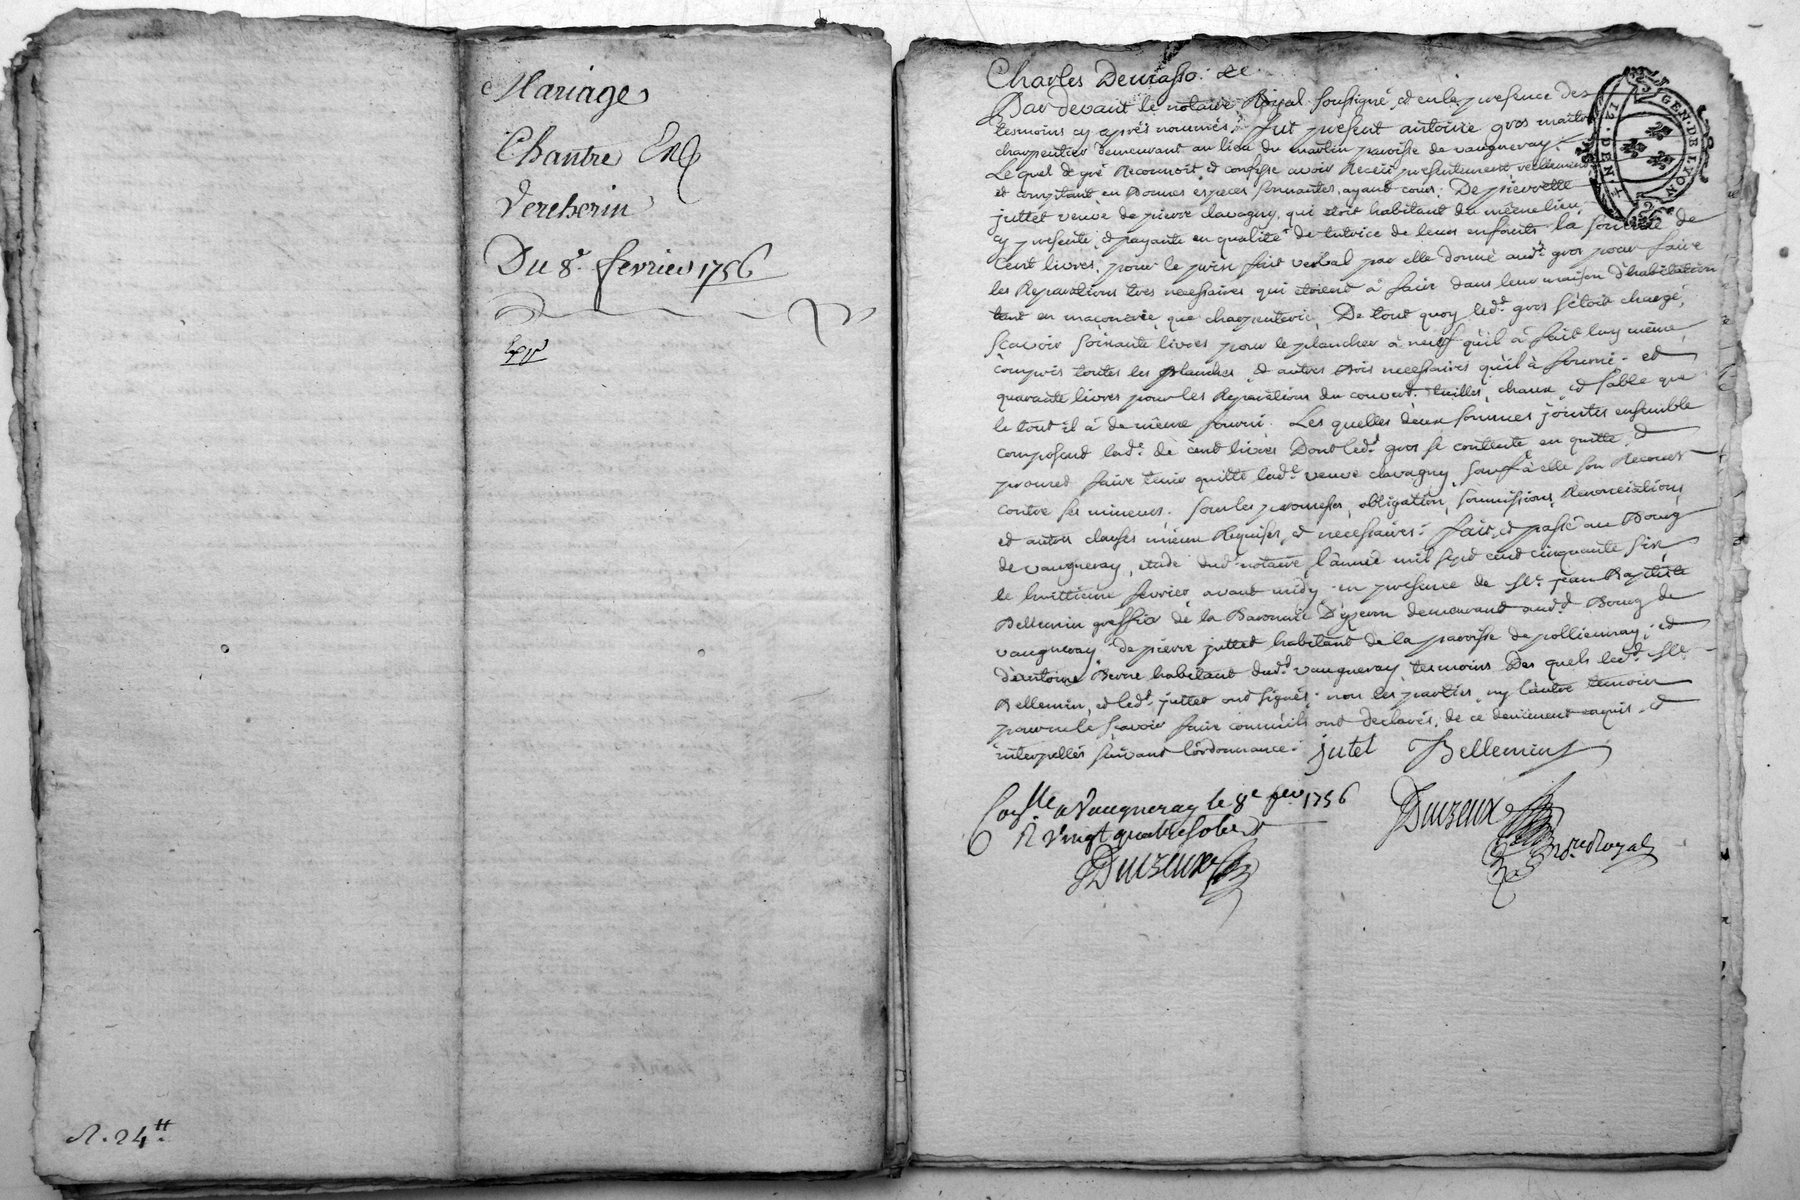 Mariage
Chantre Et
Vercherin
Du 8e. fevrier 1756
R. 24tt.
Charles Demasso. &c.
Par devant le notaire Royal soussigné, et en la presence des
temoins cy aprés nommés, fut present antoine gros maitre
charpentier demeurant au lieu du martin paroisse de vaugneray.
Le quel de gré Reconnoit, et confesse avoir Receu presentement, reellement
et comptant en Bonnes especes sonnantes, ayant cours. De pierrette
juttet veuve de pierre clavagny, qui etoit habitant du même lieu,
cy presente, et payante en qualité de tutrice de leurs enfants la somme de
Cent livres, pour le prix fait verbal par elle donné aud.t gros pour faire
les Reparations tres necessaires qui etoient à faire dans leur maison d'habitation
tant en maçonerie que charpenterie, De tout quoy led.t gros s'étoit chargé,
sçavoir soixante livres pour le plancher à neuf qu'il à fait luy même,
compris toutes les planches, et autres Bois necessaires qu'il à fourni. et
quarante livres pour les Reparations du couvert, tuilles, chaux, et sable que
le tout il à de même fourni. Les quelles deux sommes jointes ensemble
composent lad.e de cent livres Dont led.t gros se contente en quitte, et
promet faire tenir quitte lad.e veuve clavagny, sauf à elle son Recours
contre ses mineurs. sous les promesses, obligation, soumissions, Renonciations
et autres clauses mieux Requises, et necessaires. fait, et passé au Bourg
de vaugneray, etude dud.t notaire l'année mil sept cent cinquante six
le huittieme fevrier avant midy en presence de Sr. jean Baptiste
Bellemin greffier de la Baronnie D'yzeron demeurant aud.t Bourg de
vaugneray, de pierre juttet habitant de la paroisse de pollionnay, et
d'antoine Berne habitant dud.t vaugneray temoins Des quels led.t Sr.
Bellemin, et led.t juttet ont signés, non les parties, ny l'autre temoin
pour ne le sçavoir faire comm'ils ont declarés, de ce deüement enquis, et
interpellés suivant l'ordonnance.
jutet Bellemin
Con.lle a Vaugneray le 8e fev. 1756
R Vingt quatre sols
Duizeux
Duizeux
n.re Royal
GEN. DE LYON
12. DEN. T